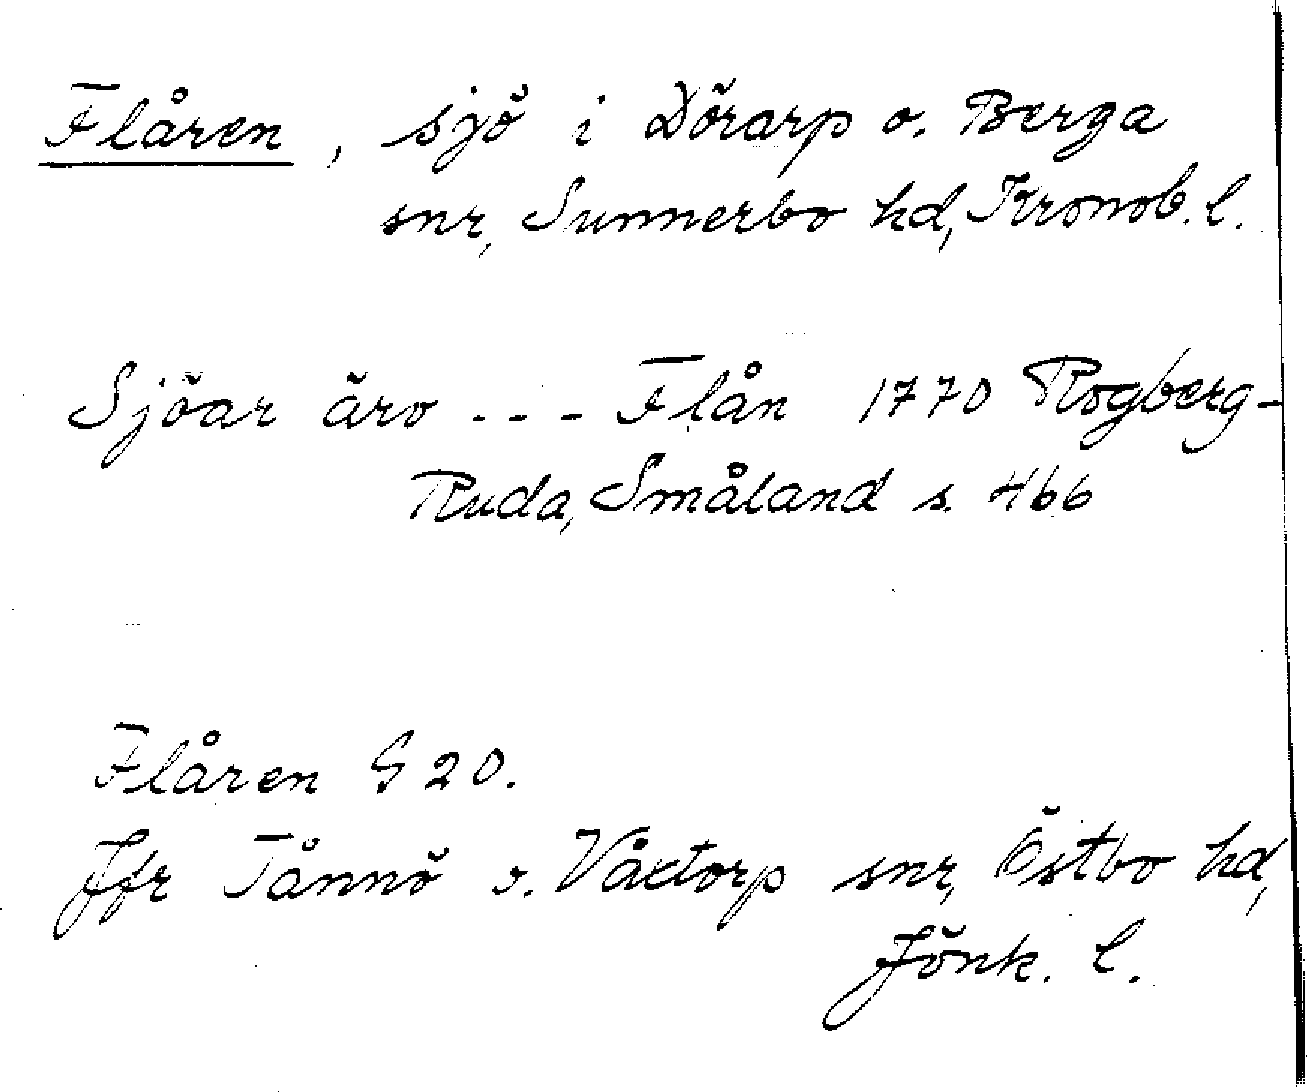 Flåren, sjö i Dörarp o. Berga
snr, Sunnerbo hd, Kronob. l.
Sjöar äro - - - Flån 1770 Rogberg-
Ruda, Småland s. 466
Flåren G 20.
Jfr Tånnö o. Våxtorp snr, Östbo hd,
Jönk. l.